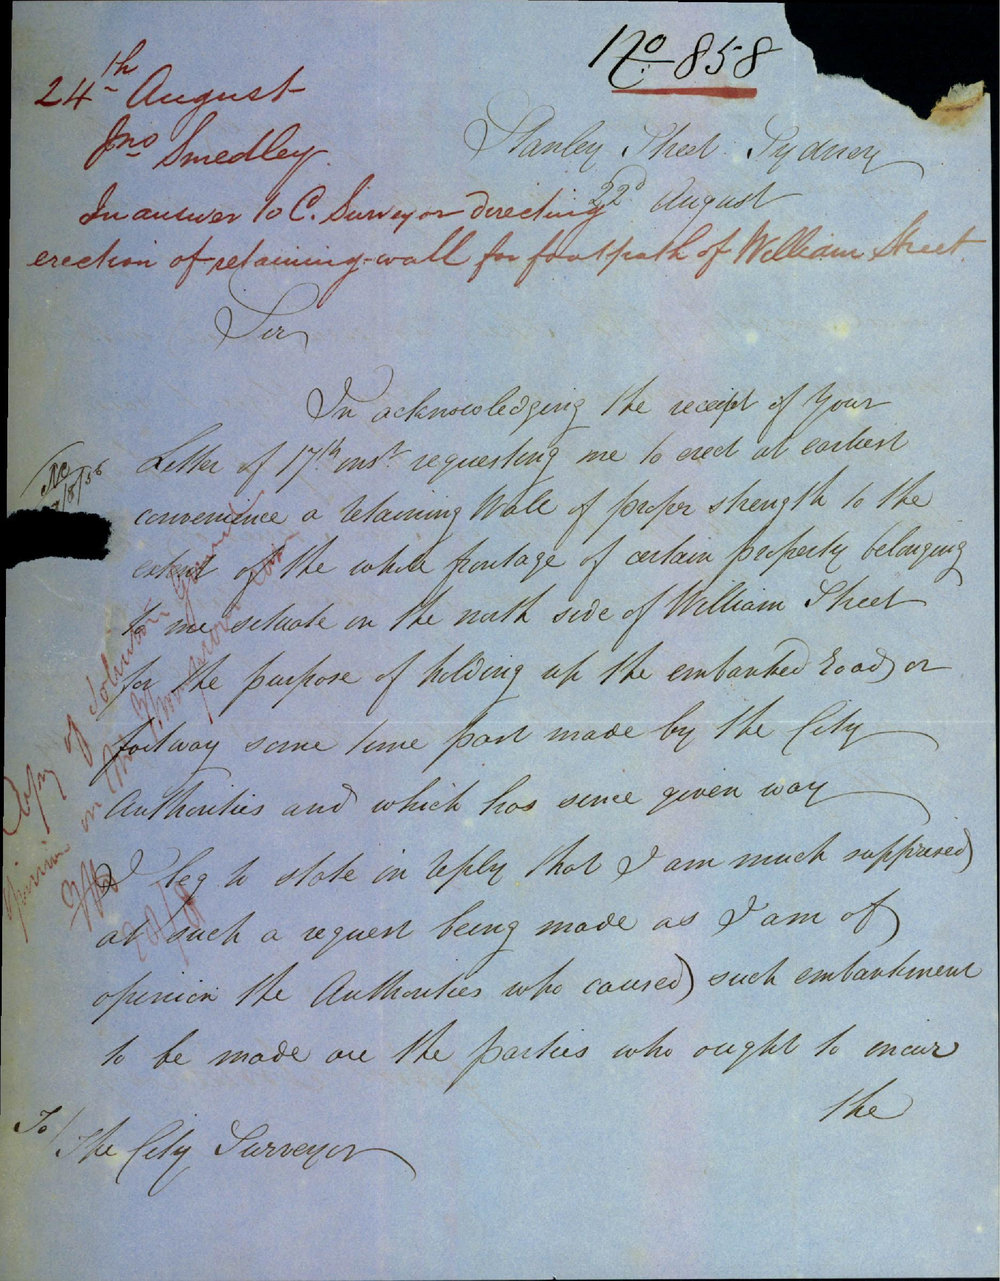 No. 858
24th August
Jno Smedley.
In answer to C. Surveyor directing
erection of retaining-wall for footpath of William Street
Stanley Street Sydney
22d August
Sir
In acknowledging the receipt of Your
Letter of 17th inst requesting me to erect at earliest
convenience a retaining Wall of proper strength to the
extent of the whole frontage of certain property belonging
to me situate on the north side of William Street
for the purpose of holding up the embanked road or
footway some time past made by the City
Authorities and which has since given way
I beg to state in reply that I am much surprised
at such a request being made as I am of
opinion the Authorities who caused such embankment
to be made are the parties who ought to incur
the
To/
The City Surveyor
Copy of Solicitors
opinion on the Improvement